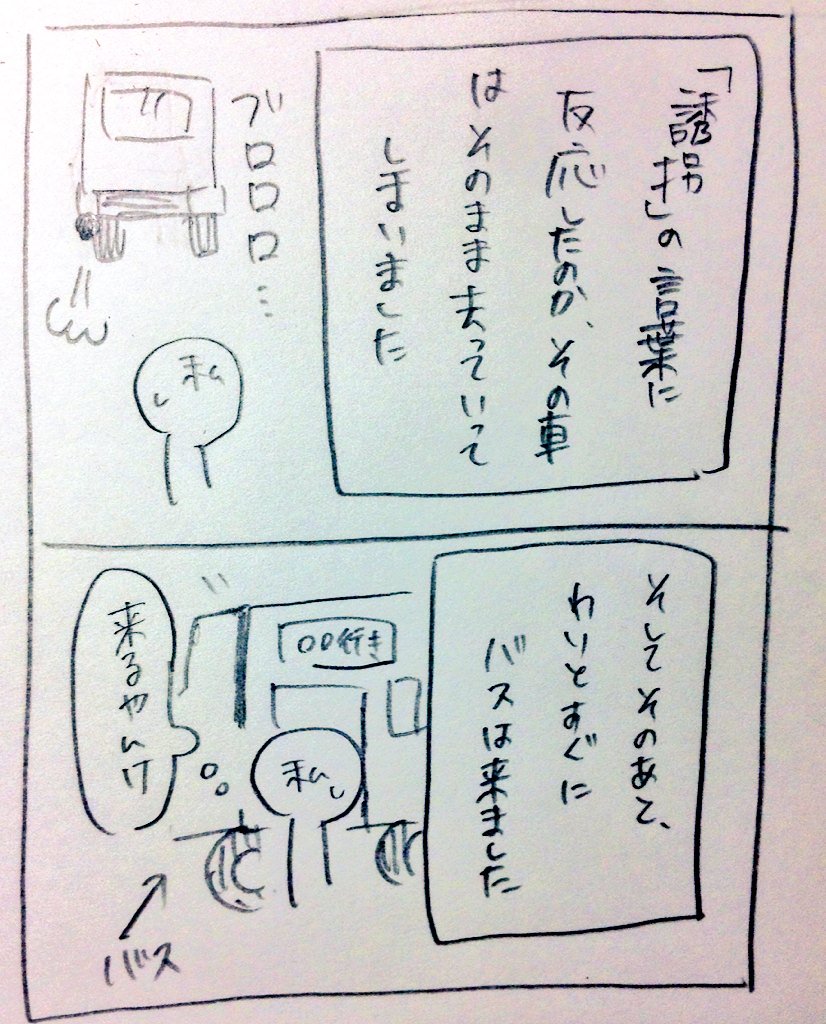 「誘拐」の言葉に
反応したのか、その車
はそのまま去っていって
しまいました
ブロロロ…
私
そしてそのあと、
わりとすぐに
バスは来ました
〇〇行き
私
来るやんけ
バス